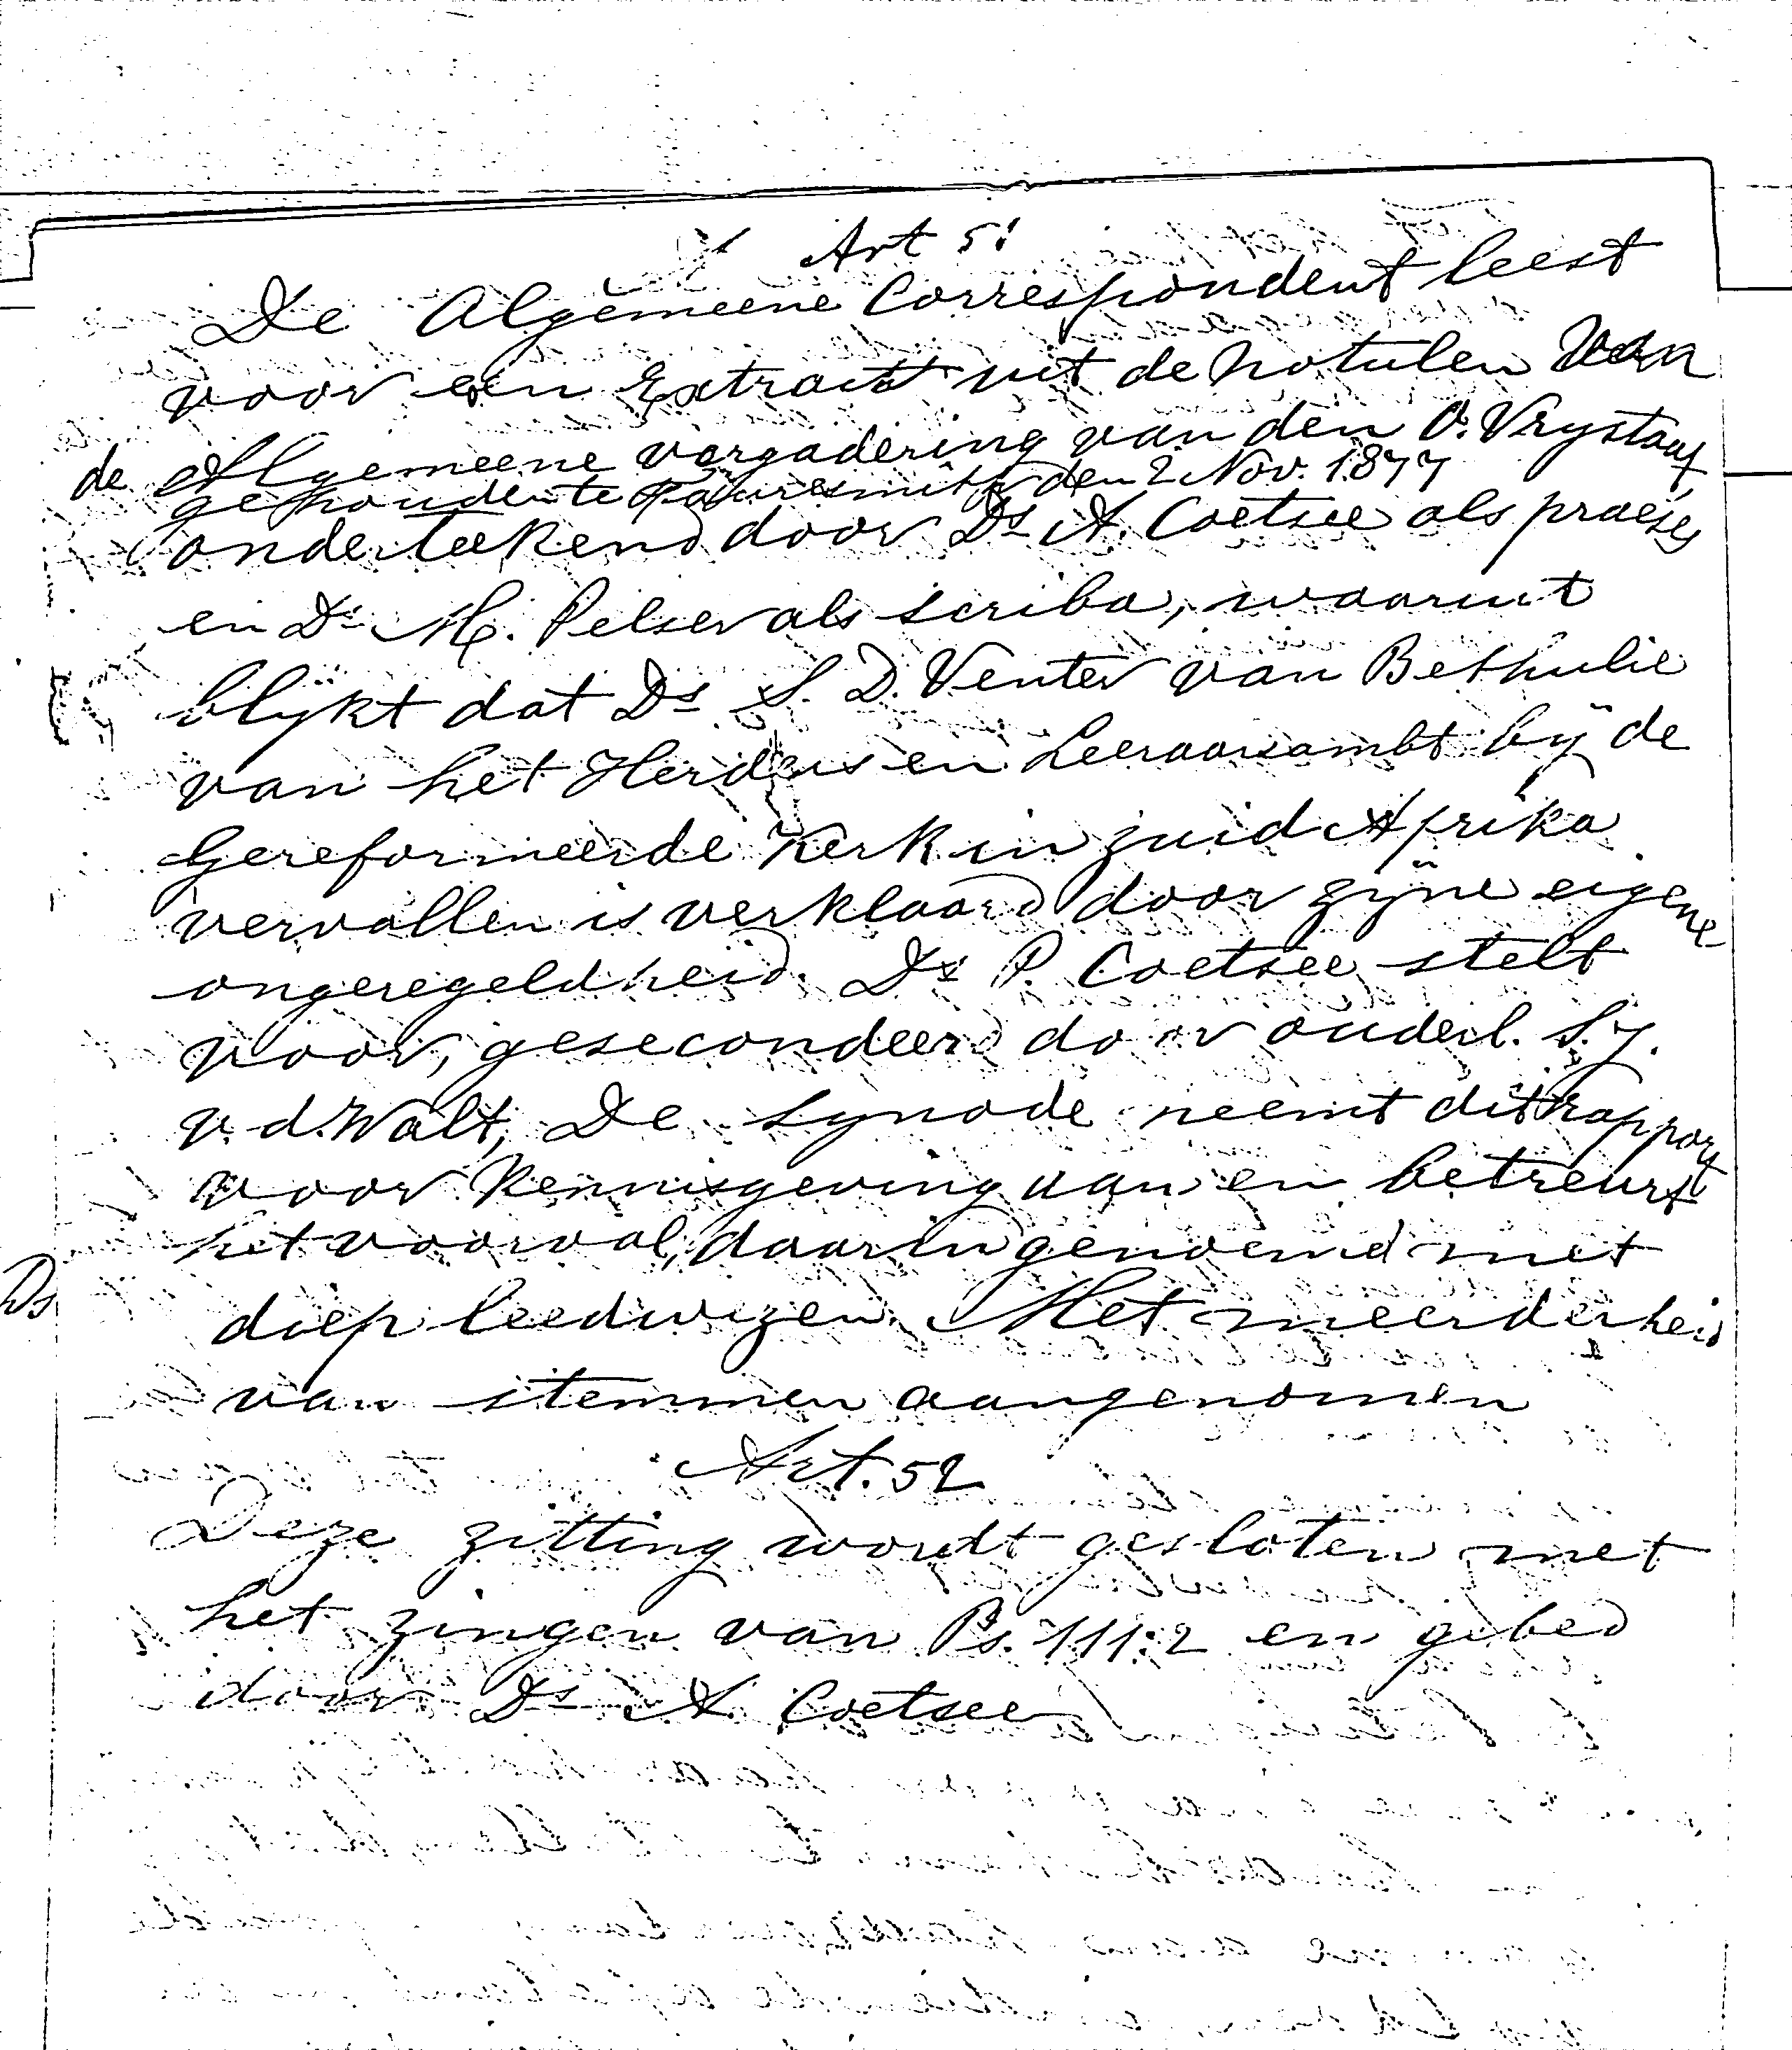 Art 51
De Algemeene Correspondent leest
voor een Extract uit de notulen van
de Algemeene vergadering van den O. Vrystaat
gehouden te Fauresmith den 2 Nov. 1877
onderteekend door Ds A. Coetsee als praeses
en Ds M. Pelser als scriba, waaruit
blykt dat Ds S. D. Venter van Bethulie
van het Herders en Leeraarsambt bÿ de
Gereformeerde Kerk in Zuid Afrika
vervallen is verklaard door zÿne eigene
ongeregeldheid. Ds P. Coetsee stelt
voor, gesecondeerd door ouderl. S.J.
v.d. Walt, De synode neemt dit rapport
voor kennisgeving aan en betreurt
het voorval, daarin genoemd met
Ds
diep leedwezen. Met meerderheid
van stemmen aangenomen
Art. 52
Deze zitting wordt gesloten met
het zingen van Ps. 111:2 en gebed
door Ds A. Coetsee